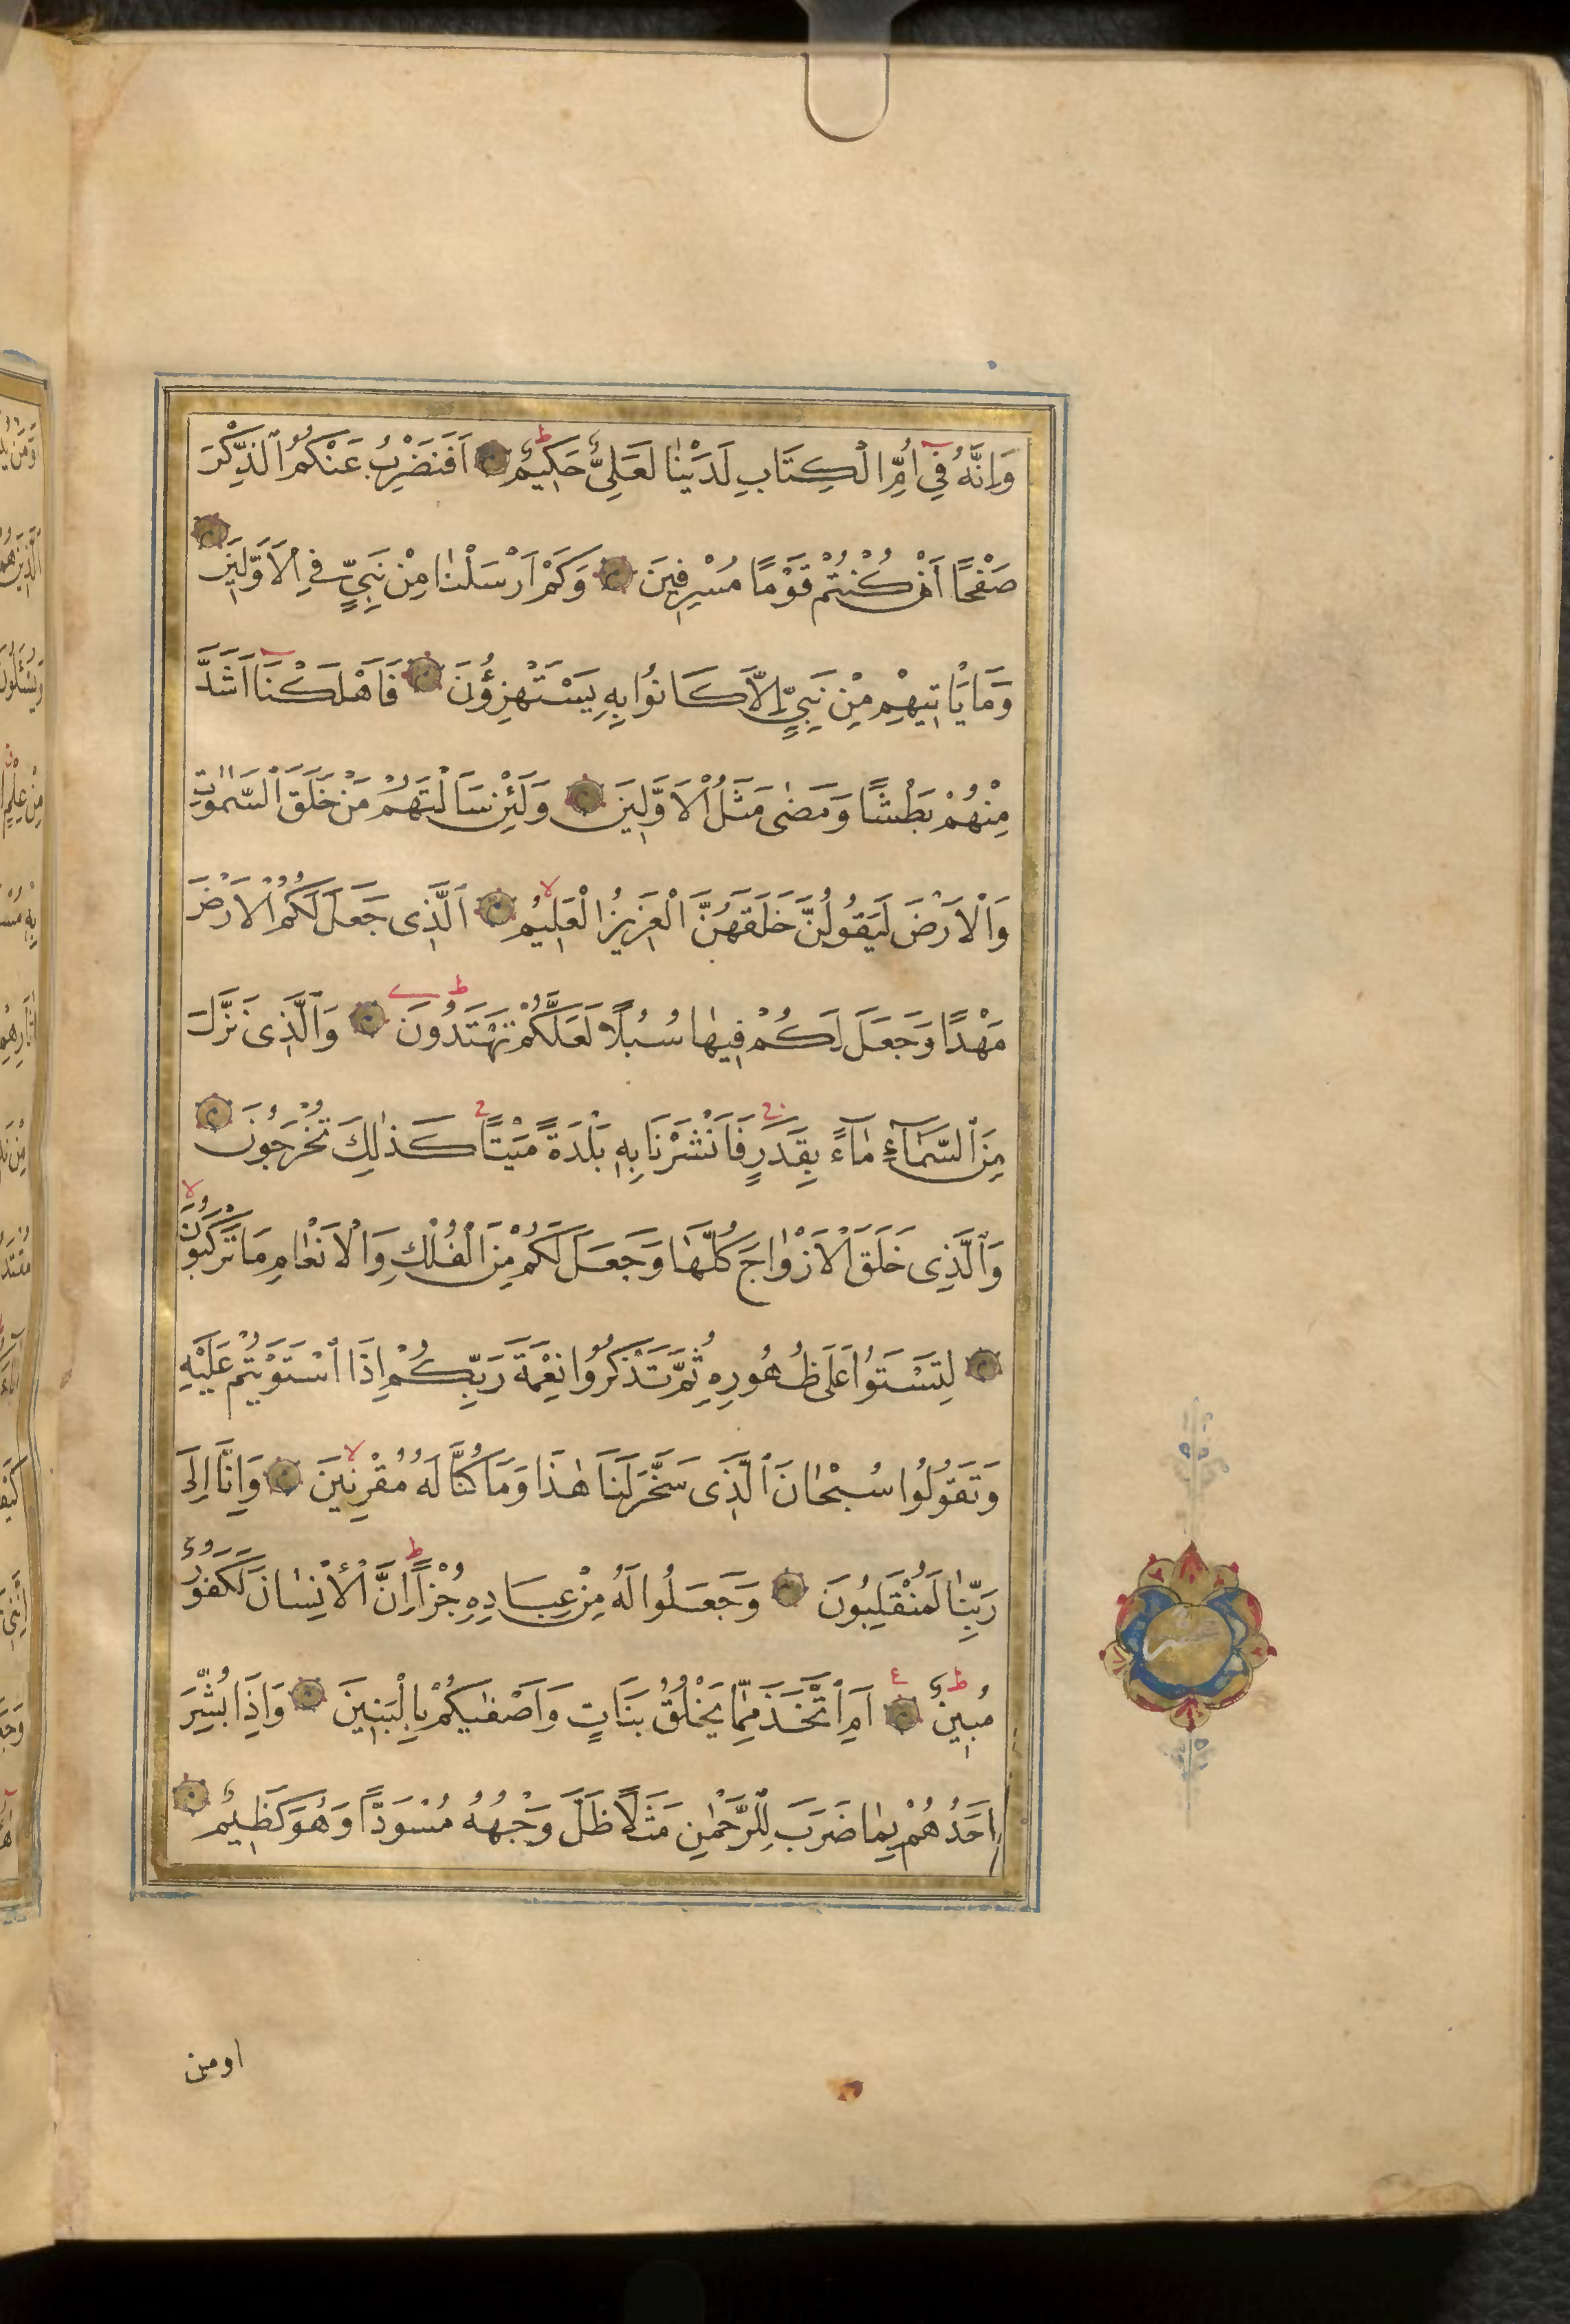 وَاِنَّهُ فِي اُمِّ الْكِتَابِ لَدَيْنٰا لَعَلِىٌّ حَكِيمٌ اَفَنَضْرِبُ عَنْكُمُ الذِّكْرَ
صَفْحًا اَنْ كُنْتُمْ قَوْمًا مُسْرِفِينَ وَكَمْ اَرْسَلْنٰا مِنْ نَبِيٍّ فِي الْاَوَّلِينَ
وَمَا يَاْتِيهِمْ مِنْ نَبِيٍّ اِلَّا كَانُوا بِهِ يَسْتَهْزِؤُنَ فَاَهْلَكْنَا اَشَدَّ
مِنْهُمْ بَطْشًا وَمَضٰى مَثَلُ الْاَوَّلِينَ وَلَئِنْ سَاَلْتَهُمْ مَنْ خَلَقَ السَّمٰوٰتِ
وَالْاَرْضَ لَيَقُولُنَّ خَلَقَهُنَّ الْعَزِيزُ الْعَلِيمُ اَلَّذِى جَعَلَ لَكُمُ الْاَرْضَ
مَهْدًا وَجَعَلَ لَكُمْ فِيهٰا سُبُلًا لَعَلَّكُمْ تَهْتَدُونَ وَالَّذِى نَزَّلَ
مِنَ السَّمَاۤءِ مٰاۤءً بِقَدَرٍ فَاَنْشَرْنَا بِهِ بَلْدَةً مَيْتًا كَذٰلِكَ تُخْرَجُونَ
وَالَّذِى خَلَقَ الْاَزْوٰاجَ كُلَّهٰا وَجَعَلَ لَكُمْ مِنَ الْفُلْكِ وَالْاَنْعٰامِ مَا تَرْكَبُونَ
لِتَسْتَوُا عَلَى ظُهُورِهِ ثُمَّ تَذْكُرُوا نِعْمَةَ رَبِّكُمْ اِذَا اسْتَوَيْتُمْ عَلَيْهِ
وَتَقُولُوا سُبْحٰانَ الَّذِى سَخَّرَ لَنَا هٰذَا وَمَا كُنَّا لَهُ مُقْرِنِينَ وَاِنَّا اِلَى
رَبِّنٰا لَمُنْقَلِبُونَ وَجَعَلُوا لَهُ مِنْ عِبَادِهِ جُزْاً اِنَّ الْاِنْسٰانَ لَكَفُورٌ
مُبِينٌ اَمِ اتَّخَذَ مِمَّا يَخْلُقُ بَنَاتٍ وَاَصْفٰيكُمْ بِالْبَنِينَ وَاِذَا بُشِّرَ
اَحَدُهُمْ بِمٰا ضَرَبَ لِلرَّحْمٰنِ مَثَلًا ظَلَّ وَجْهُهُ مُسْوَدًّا وَهُوَ كَظِيمٌ
اومن